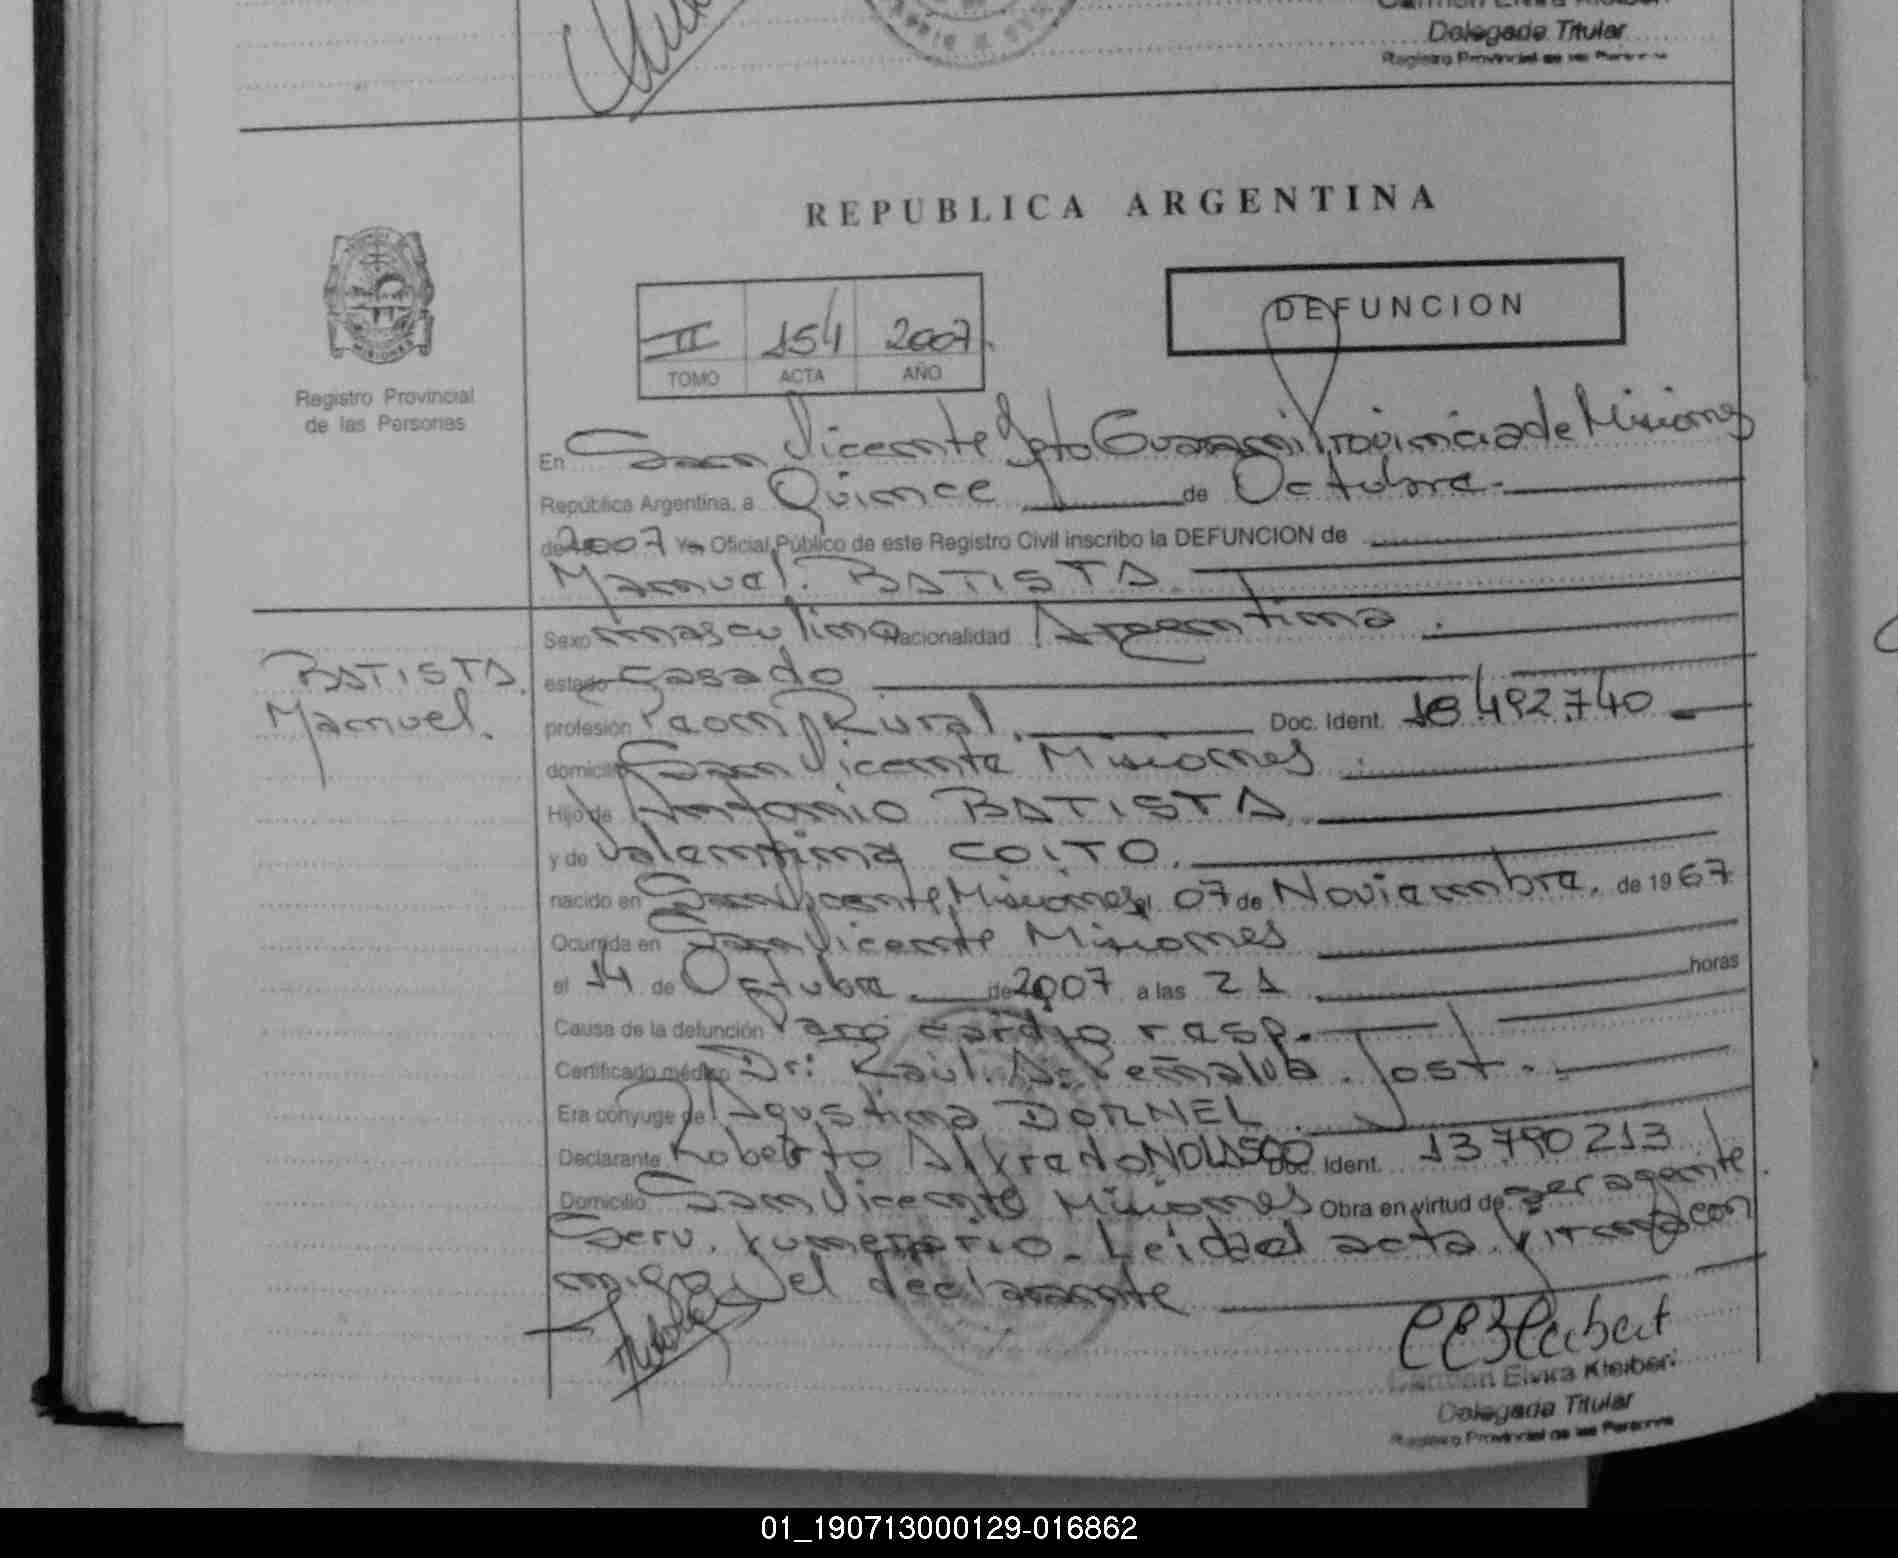 Delegada Titular
Registro Provincial de las Personas
REPUBLICA ARGENTINA
II 154 2007
TOMO ACTA AÑO
DEFUNCION
Registro Provincial
de las Personas
MISIONES
En San Vicente Dpto Guarani Provincia de Misiones
República Argentina, a Quince de Octubre.
de 2007 Yo Oficial Público de este Registro Civil inscribo la DEFUNCION de
Manuel. BATISTA.
Sexo masculino Nacionalidad Argentina.
BATISTA.
Manuel.
estado Casado
profesión Peon Rural. Doc. Ident. 18492740
domicilio San Vicente Misiones.
Hijo de Antonio BATISTA.
y de Valentina COITO.
nacido en San Vicente Misiones, el 07 de Noviembre. de 1967
Ocurrida en San Vicente Misiones
el 14 de Octubre. de 2007 a las 21 horas
Causa de la defunción Paro cardio resp.
Certificado médico Dr: Raúl. A. Peñalva. Jost.
Era cónyuge de Agustina DORNEL.
Declarante Roberto Alfredo NOLASCO Doc. Ident. 13790213
Domicilio San Vicente Misiones Obra en virtud de ser agente
Serv. funerario. Leida el acta firma con
migo el declarante
Carmen Elvira Kleibert
Delegada Titular
Registro Provincial de las Personas
01_190713000129-016862